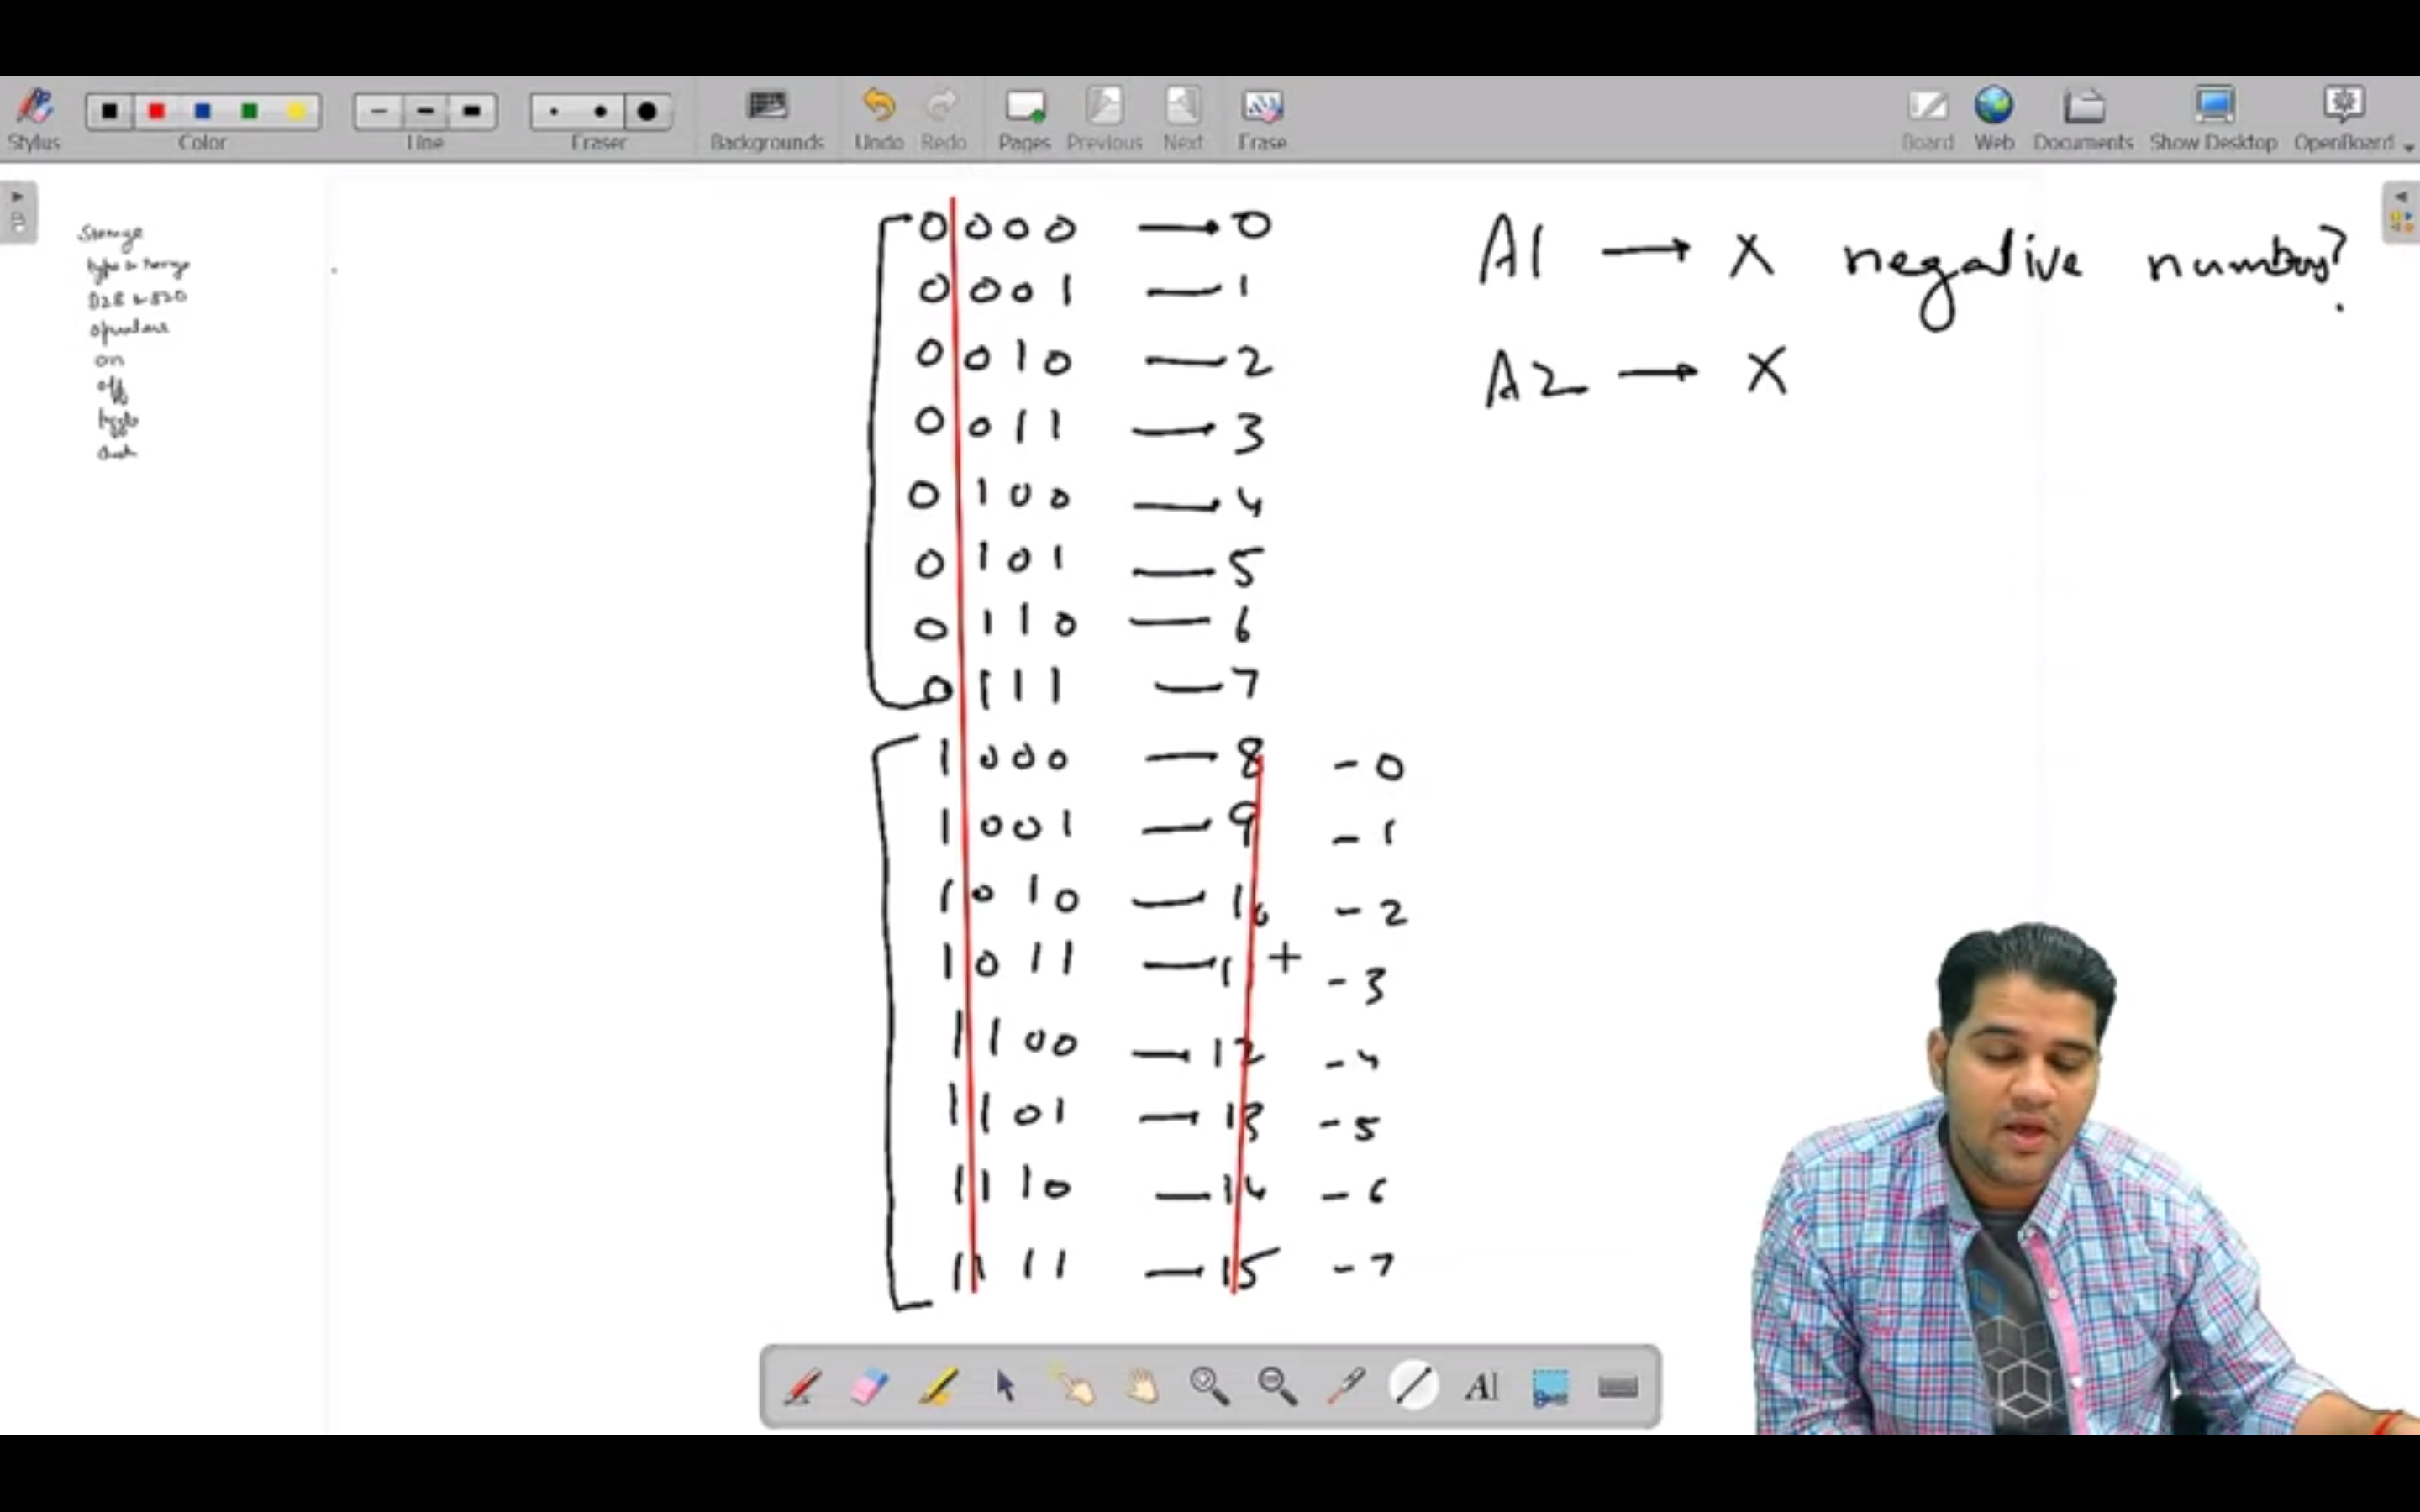 Stylus
Color
Line
Eraser
Backgrounds
Undo
Redo
Pages
Previous
Next
Erase
Board
Web
Documents
Show Desktop
OpenBoard
Storage
D2B & B2D
operators
on
off
0 0 0 0 → 0
0 0 0 1 — 1
0 0 1 0 — 2
0 0 1 1 — 3
0 1 0 0 — 4
0 1 0 1 — 5
0 1 1 0 — 6
0 1 1 1 — 7
1 0 0 0 — 8 - 0
1 0 0 1 — 9 - 1
1 0 1 0 — 10 - 2
1 0 1 1 — 11 - 3
1 1 0 0 — 12 - 4
1 1 0 1 — 13 - 5
1 1 1 0 — 14 - 6
1 1 1 1 — 15 - 7
A1 → X negative numbers?
A2 → X
AI